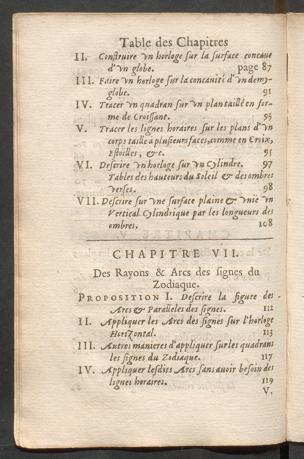 Table des Chapitres
II. Construire vn horloge sur la surface concaue
d'vn globe. page 87
III. Faire vn horloge sur la concauité d'vn demy-
globe. 91
IV. Tracer vn quadran sur vn plan taillé en for-
me de Croissant. 95
V. Tracer les lignes horaires sur les plans d'vn
corps taille a plusieurs faces, comme en Croix,
Estoilles, &c. 95
VI. Descrire vn horloge sur vn Cylindre. 97
Tables des hauteurs du Soleil & des ombres
verses. 98
VII. Descrire sur vne surface plaine & vnie vn
Vertical Cylindrique par les longueurs des
ombres. 108
CHAPITRE VII.
Des Rayons & Arcs des signes du
Zodiaque.
PROPOSITION I. Descrire la figure des
Arcs & Paralleles des signes. 112
II. Appliquer les Arcs des signes sur l'horloge
Horizontal. 113
III. Autres manieres d'appliquer sur les quadrans
les signes du Zodiaque. 117
IV. Appliquer lesdits Arcs sans auoir besoin des
lignes horaires. 119
V.